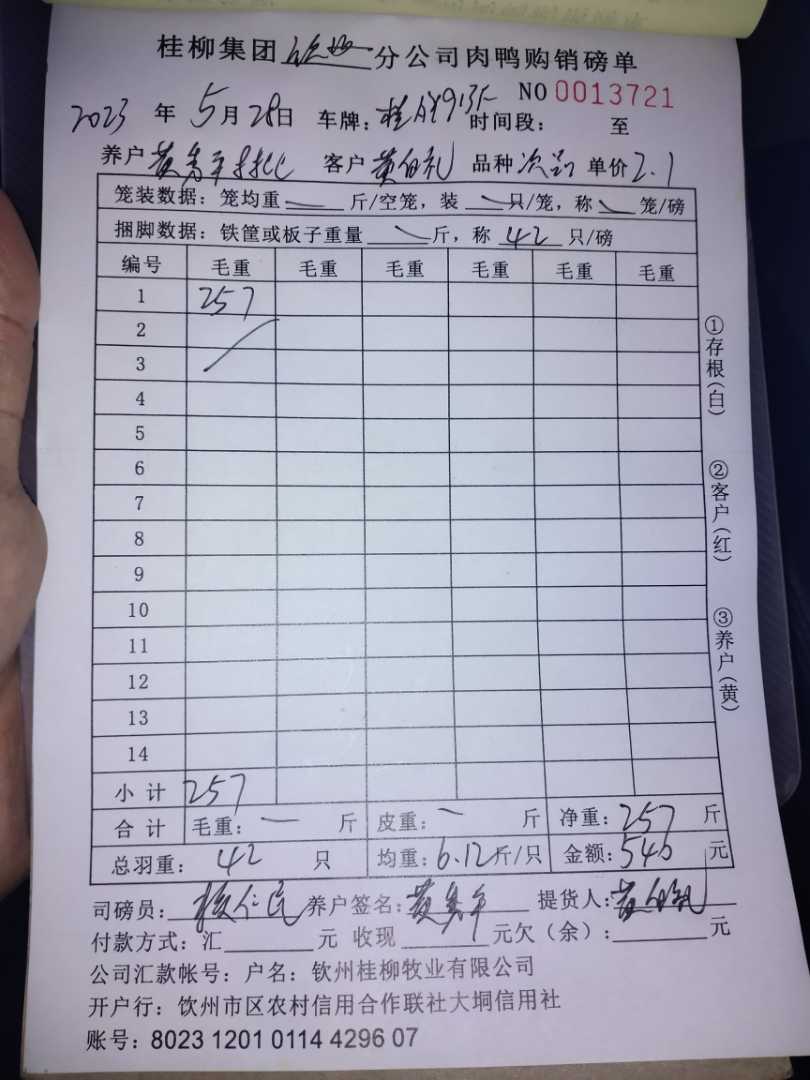 桂柳集团钦州分公司肉鸭购销磅单
NO 0013721
2023年5月28日 车牌：桂 时间段： 至
养户黄 批 客户黄伯礼 品种次品 单价2.1
笼装数据：笼均重 斤/空笼，装 只/笼，称 笼/磅
捆脚数据：铁筐或板子重量 斤，称 42 只/磅
编号 毛重 毛重 毛重 毛重 毛重 毛重
1 257
2
3
4
5
6
7
8
9
10
11
12
13
14
小计 257
合计 毛重：一 斤 皮重： 斤 净重：257 斤
总羽重：42 只 均重：6.12斤/只 金额：540元
司磅员： 养户签名：黄 提货人：黄伯礼
付款方式：汇 元 收现 元欠（余）： 元
公司汇款帐号：户名：钦州桂柳牧业有限公司
开户行：钦州市区农村信用合作联社大垌信用社
账号：8023 1201 0114 4296 07
①存根（白）
②客户（红）
③养户（黄）